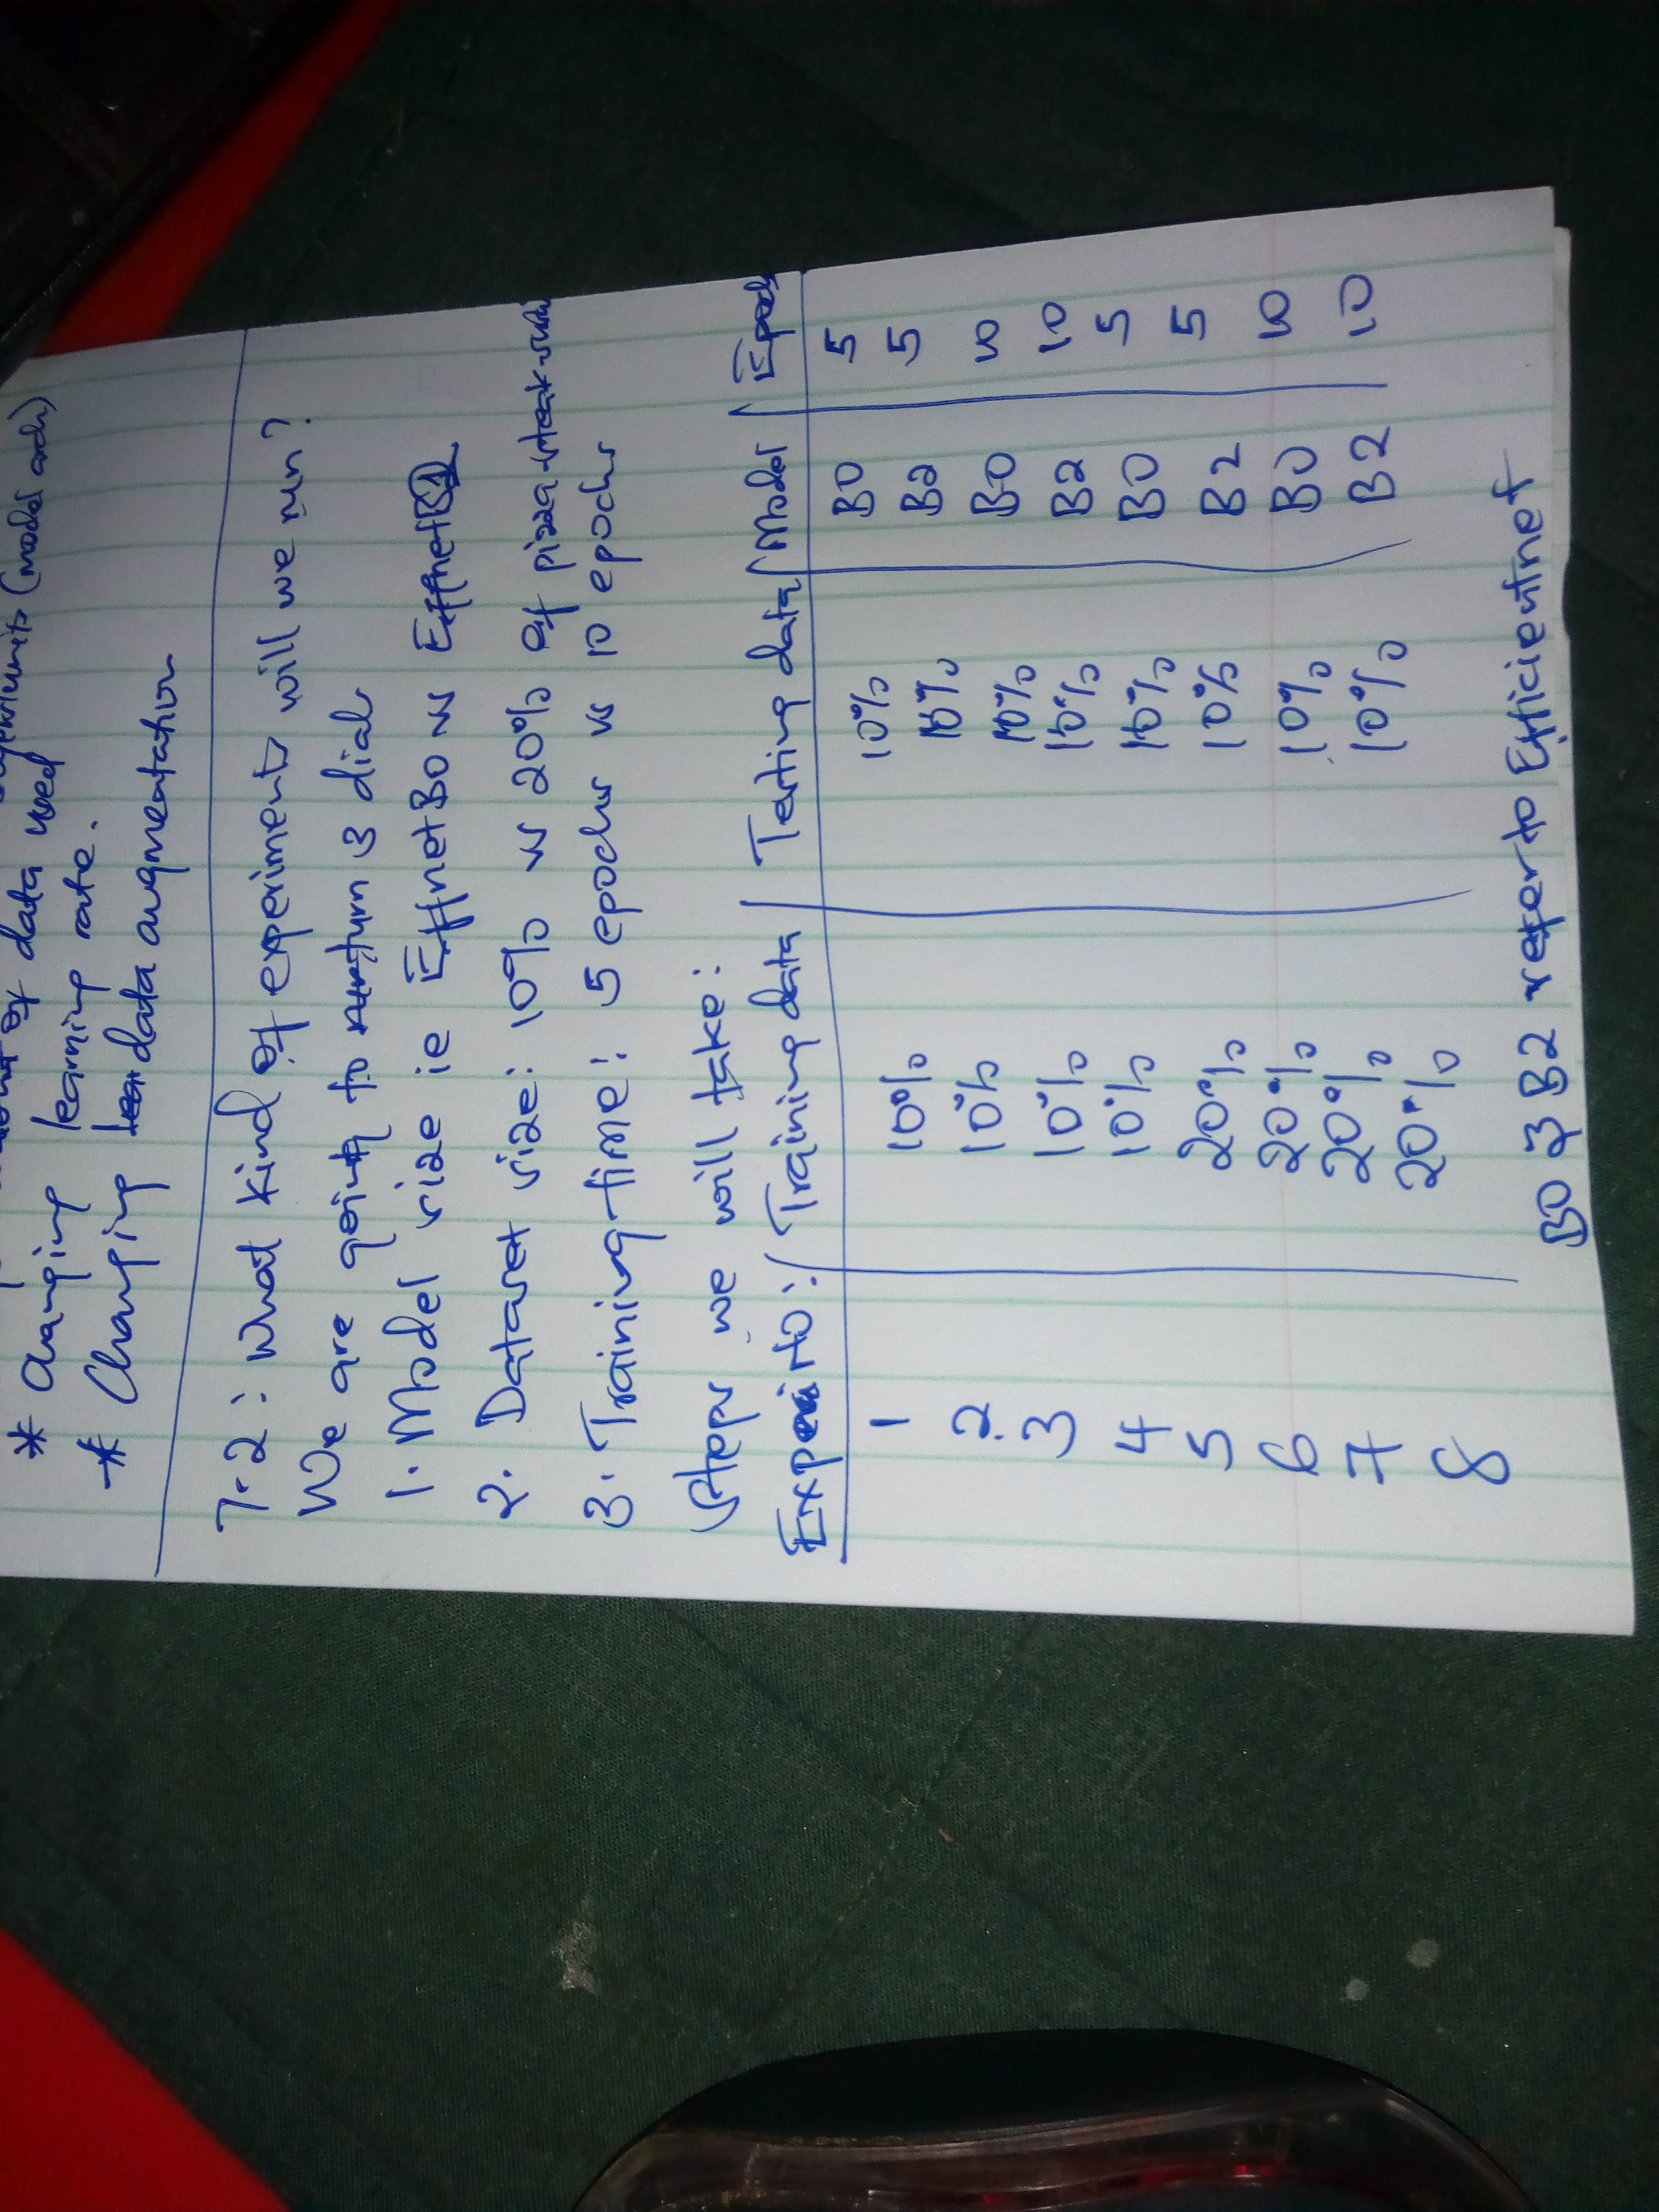 of data used experiments (model arch)
* Changing learning rate.
* Changing data augmentation
7.2: What kind of experiments will we run?
We are going to turn 3 dials
1. Model size ie EffnetB0 vs EffnetB2
2. Dataset size: 10% vs 20% of pizza steak sushi
3. Training time: 5 epochs vs 10 epochs
Steps we will take:
Experi No: | Training data | Testing data | Model | Epochs
1 10% 10% B0 5
2. 10% 10% B2 5
3 10% 10% B0 10
4 10% 10% B2 10
5 20% 10% B0 5
6 20% 10% B2 5
7 20% 10% B0 10
8 20% 10% B2 10
B0 & B2 refer to Efficientnet